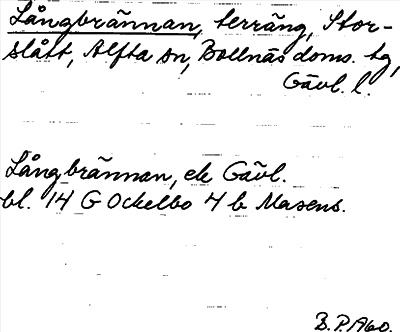 Långbrännan, terräng, Stor-
slått, Alfta sn, Bollnäs doms. tg,
Gävl. l.
Långbrännan, ek Gävl.
bl. 14 G Ockelbo 4 b Masens.
B.P. 1960.